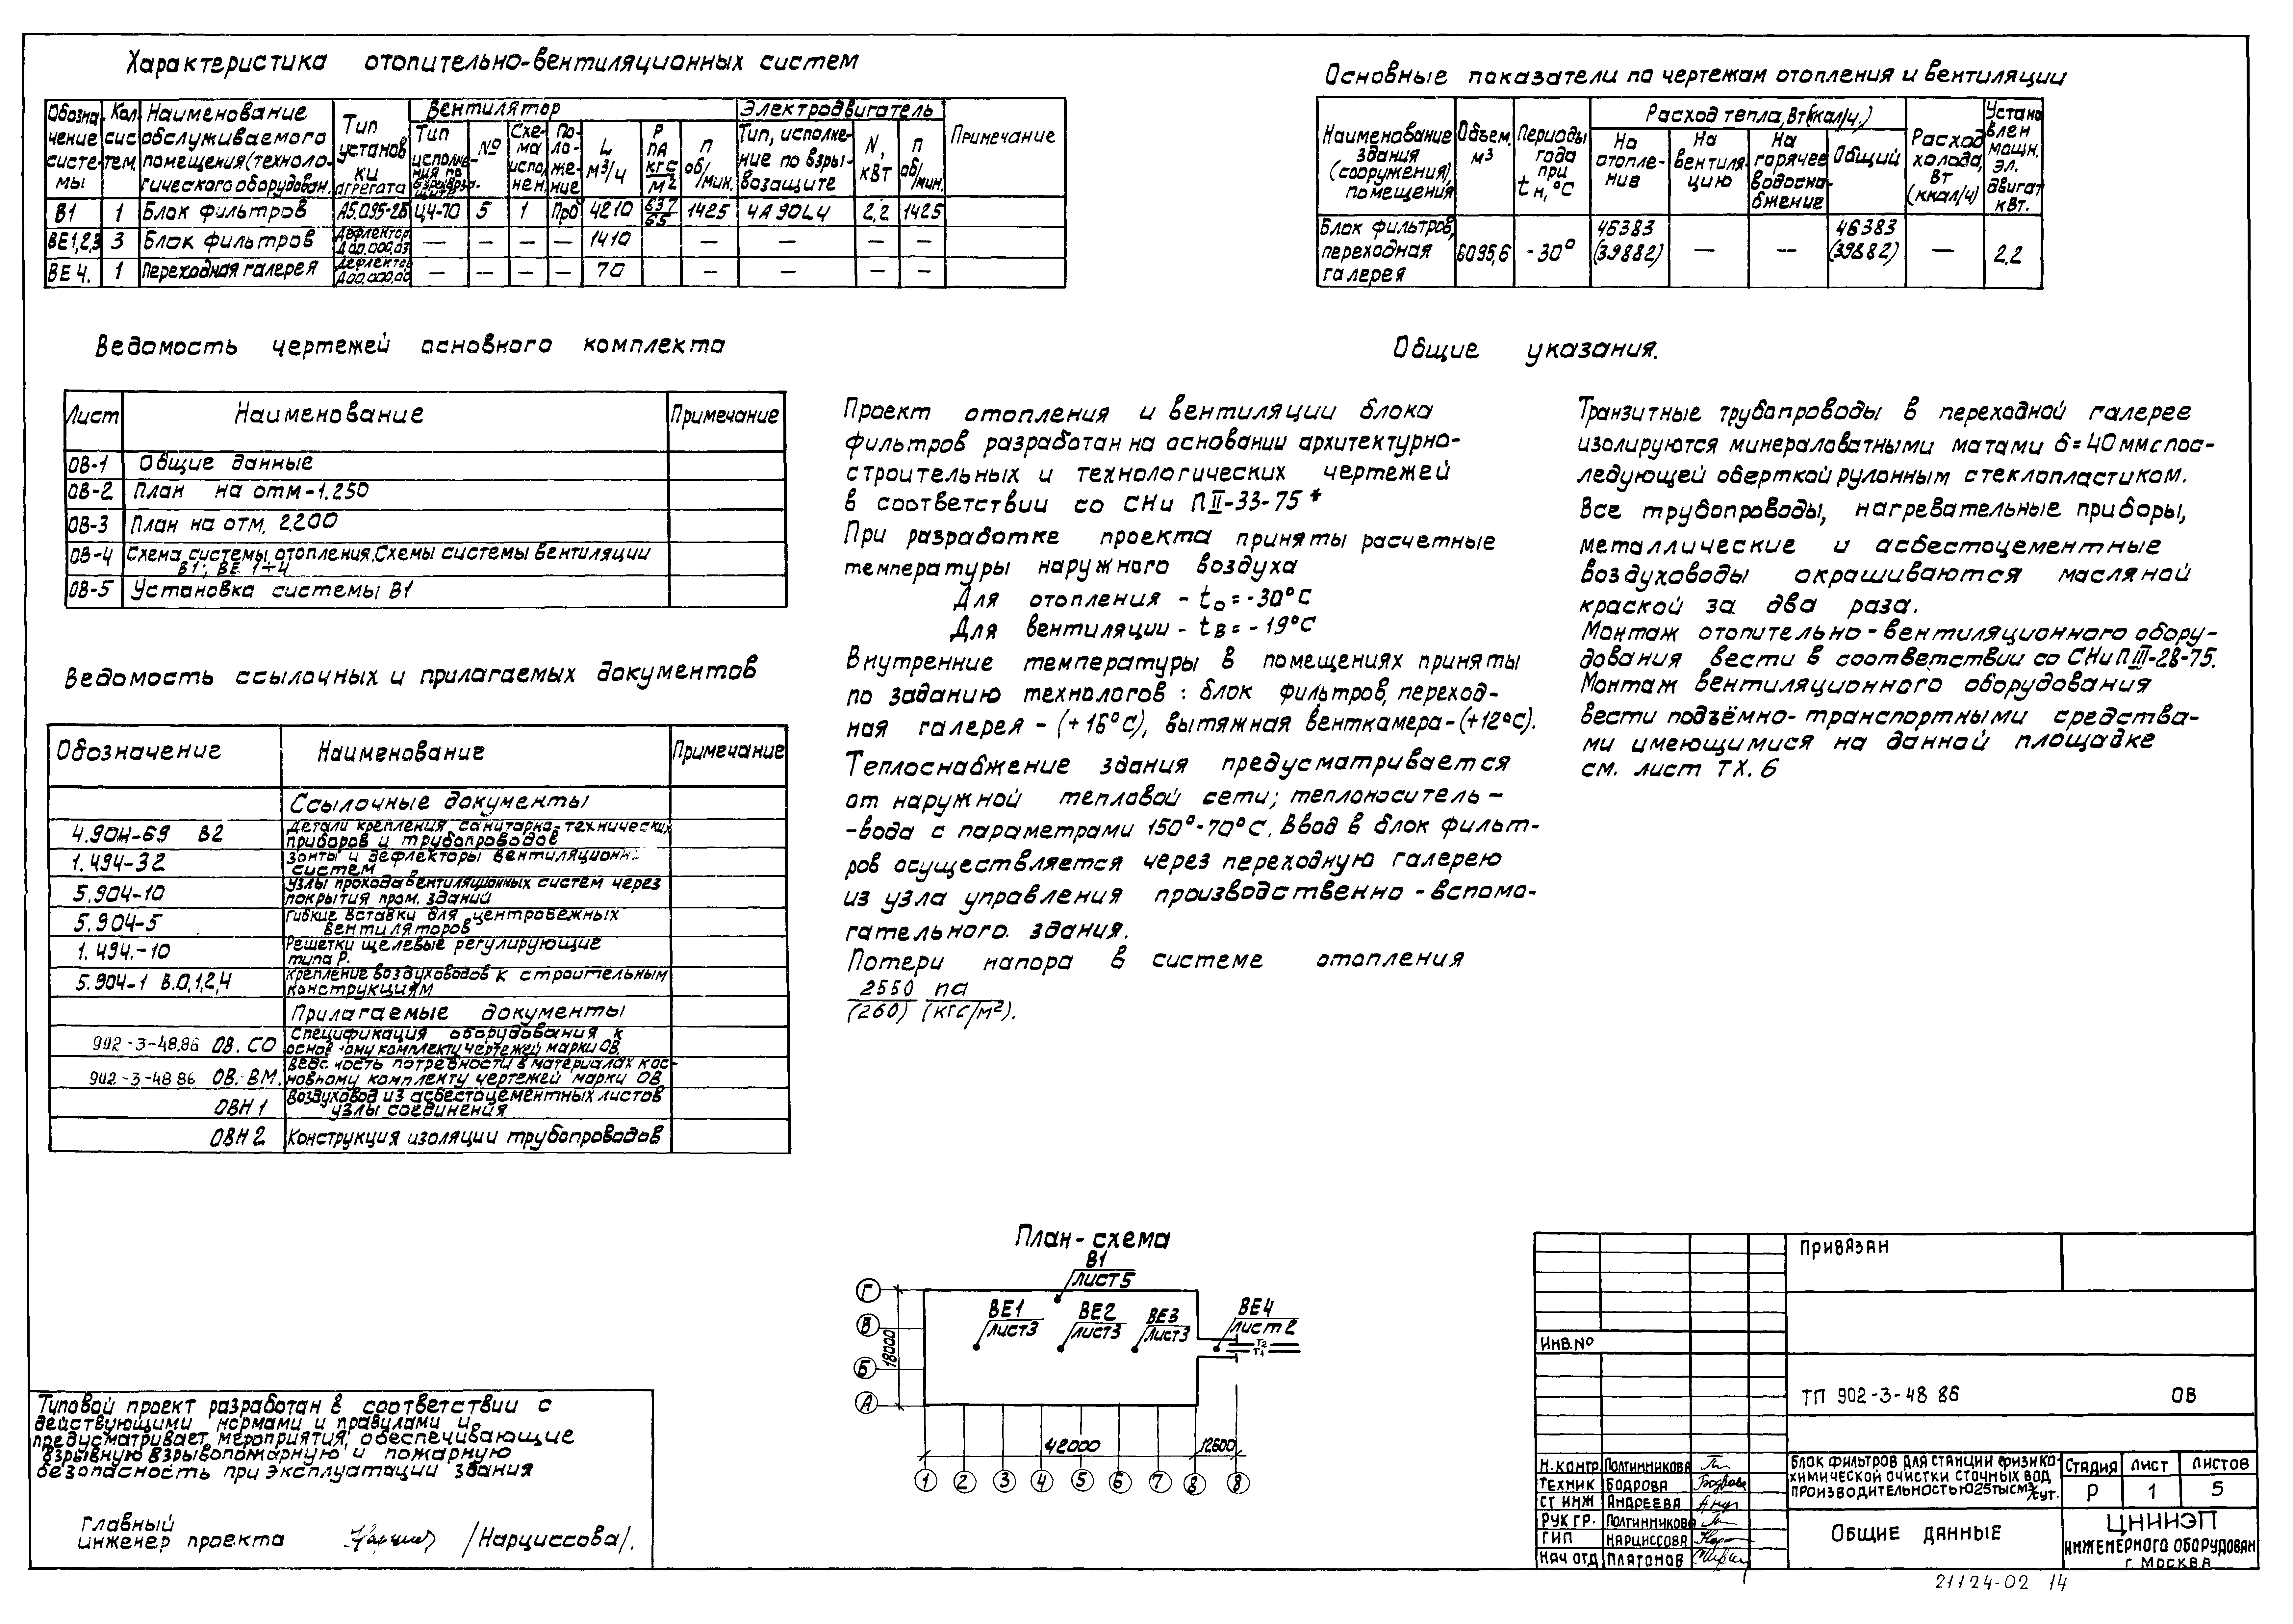 Характеристика отопительно-вентиляционных систем
Обозначение системы | Кол. систем. | Наименование обслуживаемого помещения (технологического оборудован. | Тип установки агрегата | Вентилятор | Электродвигатель | Примечание
Тип исполнения по взрывозащите | № | Схема исполнен. | Положение | L м³/ч | Р ПА кгс/м² | п об/мин. | Тип, исполнение по взрывозащите | N, кВт | п об/мин.
В1 | 1 | Блок фильтров | А5,095-2Б | Ц4-70 | 5 | 1 | Пр0° | 4210 | 637/65 | 1425 | 4А90L4 | 2,2 | 1425
ВЕ1,2,3 | 3 | Блок фильтров | Дефлектор Д00.000.03 | — | — | — | — | 1410 | — | — | — | —
ВЕ4. | 1 | Переходная галерея | Дефлектор Д00.000.00 | — | — | — | — | 70 | — | — | — | —
Основные показатели по чертежам отопления и вентиляции
Наименование здания (сооружения), помещения | Объем. м³ | Периоды года при tн,°С | Расход тепла, Вт(ккал/ч.) | Расход холода, Вт (ккал/ч) | Установлен мощн. эл. двигат кВт.
На отопление | На вентиляцию | На горячее водоснабжение | Общий
Блок фильтров, переходная галерея | 6095,6 | -30° | 46383 (39882) | — | — | 46383 (39882) | — | 2,2
Ведомость чертежей основного комплекта
Лист | Наименование | Примечание
ОВ-1 | Общие данные
ОВ-2 | План на отм-1.250
ОВ-3 | План на отм. 2.200
ОВ-4 | Схема системы отопления. Схемы системы вентиляции
В1; ВЕ 1÷4
ОВ-5 | Установка системы В1
Ведомость ссылочных и прилагаемых документов
Обозначение | Наименование | Примечание
Ссылочные документы
4.904-69 В2 | Детали крепления санитарно-технических
приборов и трубопроводов
1.494-32 | Зонты и дефлекторы вентиляционн
систем
5.904-10 | Узлы прохода вентиляционных систем через
покрытия пром. зданий
5.904-5 | Гибкие вставки для центробежных
вентиляторов
1.494.-10 | Решетки щелевые регулирующие
типа Р.
5.904-1 В.0,1,2,4 | Крепление воздуховодов к строительным
конструкциям
Прилагаемые документы
902-3-48.86 ОВ. СО | Спецификация оборудования к
основному комплекту чертежей марки ОВ.
902-3-48 86 ОВ. ВМ. | Ведомость потребности в материалах к ос-
новному комплекту чертежей марки ОВ
ОВН 1 | Воздуховод из асбестоцементных листов
узлы соединения
ОВН 2 | Конструкция изоляции трубопроводов
Общие указания.
Проект отопления и вентиляции блока
фильтров разработан на основании архитектурно-
строительных и технологических чертежей
в соответствии со СНи П II-33-75*
При разработке проекта приняты расчетные
температуры наружного воздуха
Для отопления - tо=-30°С
Для вентиляции - tв=-19°С
Внутренние температуры в помещениях приняты
по заданию технологов: блок фильтров, переход-
ная галерея - (+16°С), вытяжная венткамера-(+12°С).
Теплоснабжение здания предусматривается
от наружной тепловой сети; теплоноситель-
-вода с параметрами 150°-70°С. Ввод в блок фильт-
ров осуществляется через переходную галерею
из узла управления производственно-вспомо-
гательного здания.
Потери напора в системе отопления
2550 па
(260) (кгс/м²).
Транзитные трубопроводы в переходной галерее
изолируются минераловатными матами δ=40мм с пос-
ледующей оберткой рулонным стеклопластиком.
Все трубопроводы, нагревательные приборы,
металлические и асбестоцементные
воздуховоды окрашиваются масляной
краской за два раза.
Монтаж отопительно-вентиляционного обору-
дования вести в соответствии со СНиП III-28-75.
Монтаж вентиляционного оборудования
вести подъёмно-транспортными средства-
ми имеющимися на данной площадке
см. лист ТХ. 6
План-схема
В1
лист5
ВЕ1
лист3
ВЕ2
лист3
ВЕ3
лист3
ВЕ4
лист 2
Т2
Т1
Г
В
Б
А
18000
42000
12600
1 2 3 4 5 6 7 8 8
Типовой проект разработан в соответствии с
действующими нормами и правилами и
предусматривает мероприятия, обеспечивающие
взрывную взрывопожарную и пожарную
безопасность при эксплуатации здания
Главный
инженер проекта /Нарциссова/.
Привязан
Инв.№
ТП 902-3-48 86 ОВ
Н.контр. Полтинникова
Техник Бодрова
Ст инж Андреева
Рук гр. Полтинникова
ГИП Нарциссова
Нач отд Платонов
Блок фильтров для станции физико-
химической очистки сточных вод
производительностью 25тыс м³/сут.
Стадия | Лист | Листов
Р | 1 | 5
Общие данные
ЦНИИЭП
инженерного оборудован
г. Москва
21124-02 14